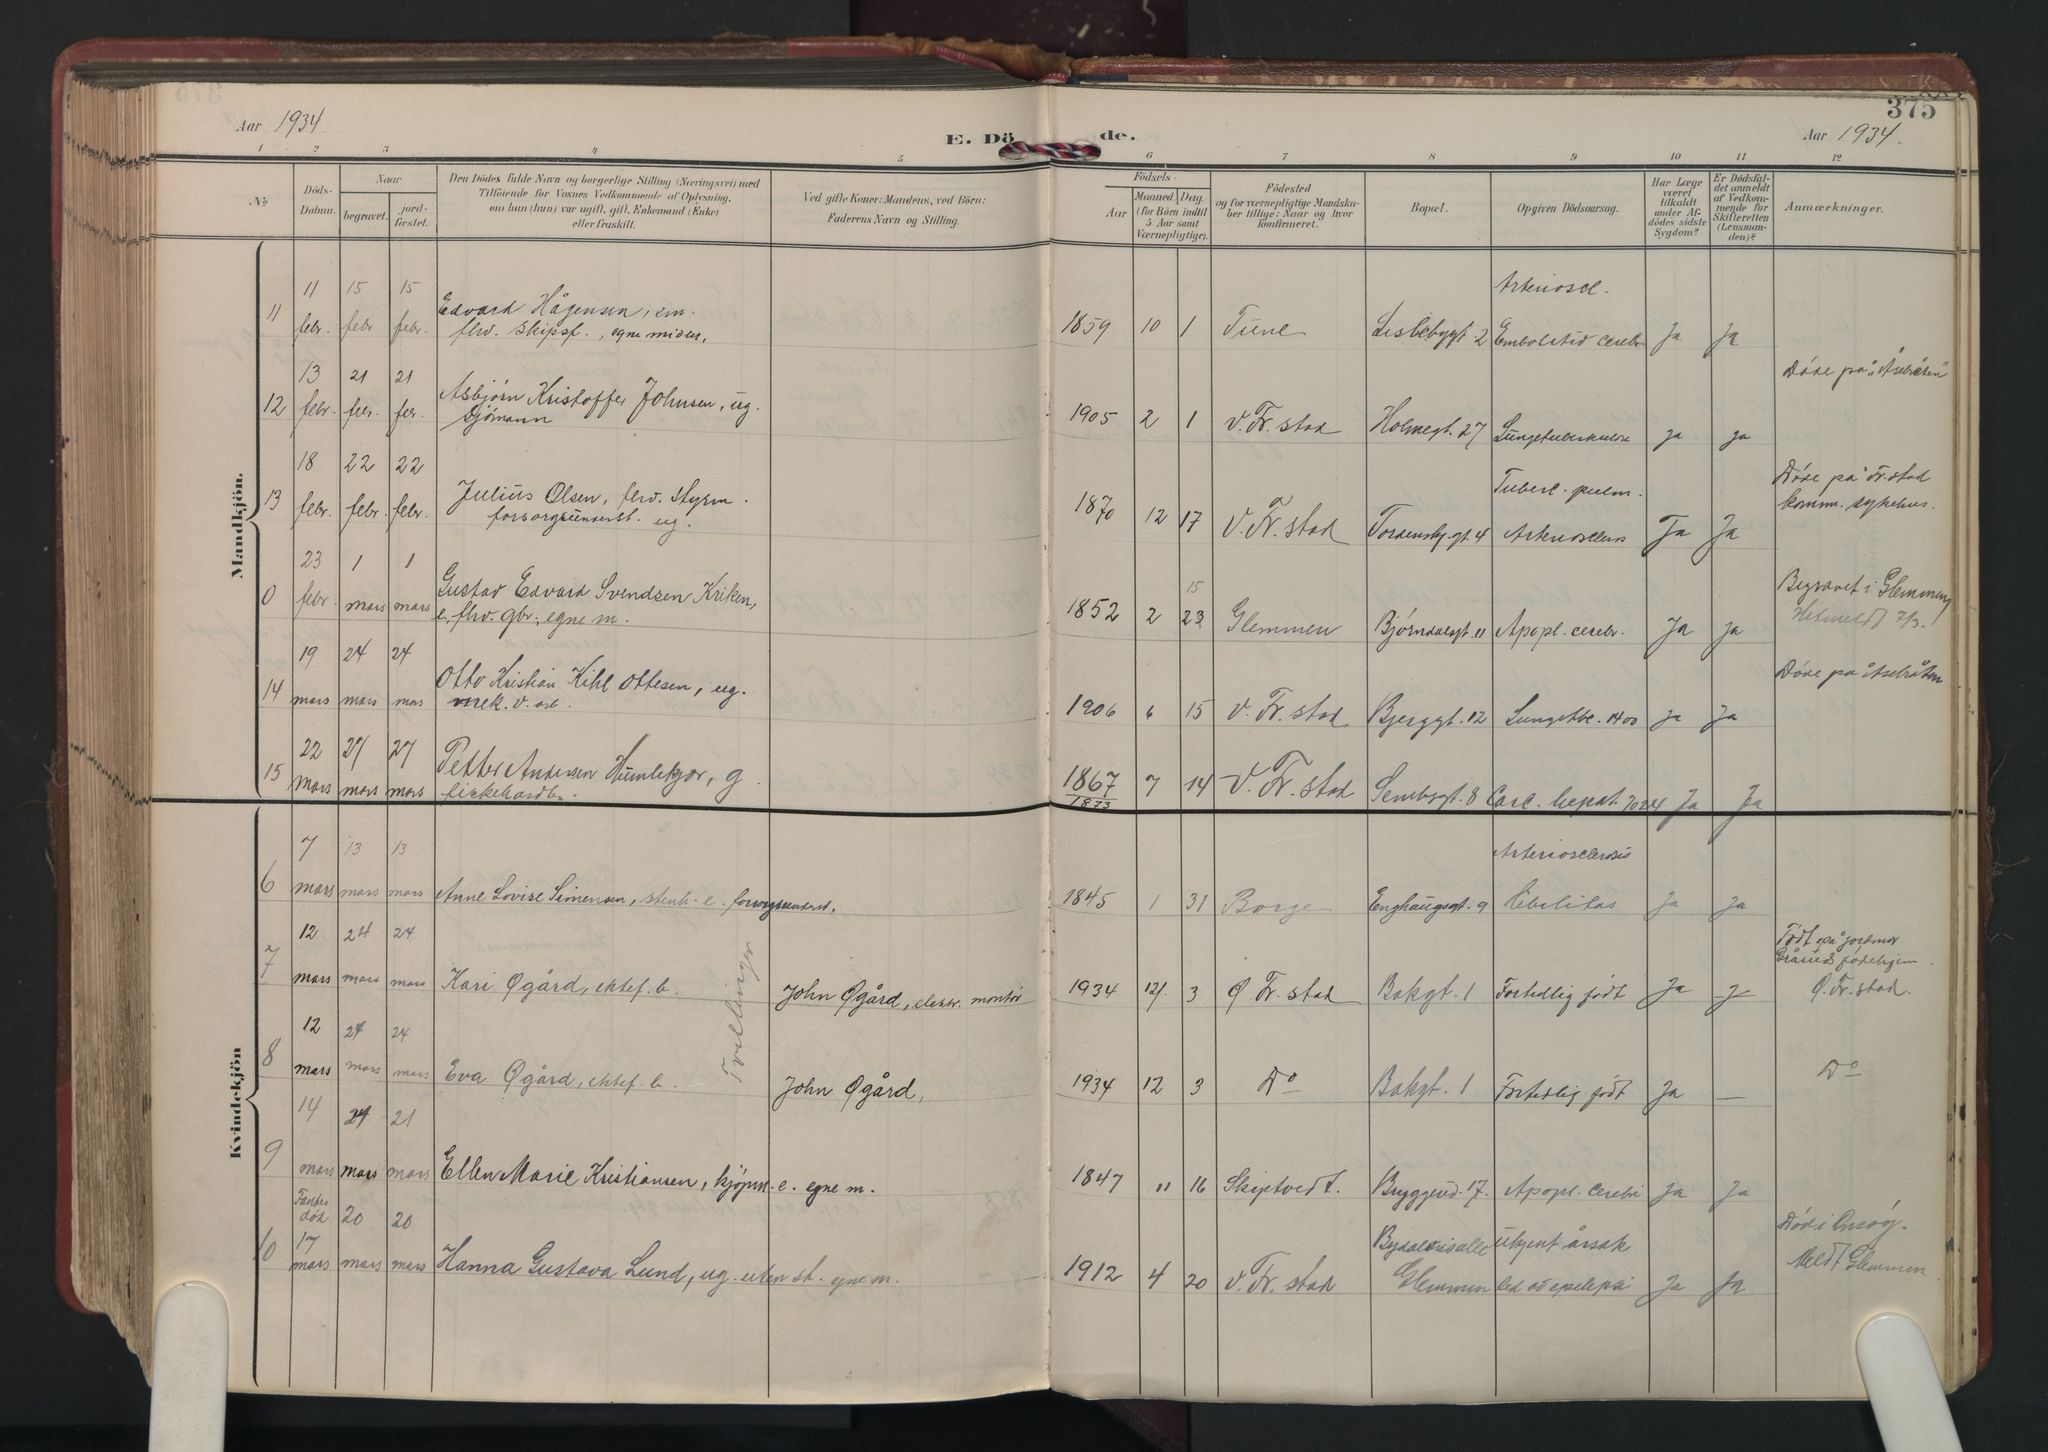 375
Aar 1934
E. Dö de.
Aar 1934.
1 2 3 4 5 6 7 8 9 10 11 12
No
Döds-
Datum.
Naar
begravet.
jord-
fæstet.
Den Dödes fulde Navn og borgerlige Stilling (Næringsvei) med
Tilföiende for Voxnes Vedkommende af Oplysning,
om han (hun) var ugift, gift, Enkemand (Enke)
eller fraskilt.
Ved gifte Koner: Mandens, ved Börn:
Faderens Navn og Stilling.
Födsels-
Aar
Maaned Dag
(for Börn indtil
5 Aar samt
Værnepligtige).
Födested
og for værnepligtige Mandskaber tillige: Naar og hvor
konfirmeret.
Bopæl.
Opgiven Dödsaarsag.
Har Læge
været
tilkaldt
under Afdödes sidste
Sygdom?
Er Dödsfaldet anmeldt
af Vedkommende for
Skifteretten
(Lensmanden)?
Anmærkninger.
Mandkjön.
11 15 15 Arterioscl.
11 febr. febr febr. Edvard Hågensen, em.
flrv. skipsf., egne midler, 1859 10 1 Tune Lislebygt 2 Ja Ja
13 21 21 Døde på "Åsebråten"
12 febr. febr. febr. Asbjørn Kristoffer Johnsen, ug.
sjömann 1905 2 1 V. Fr. stad Holmegt. 27 Lungetuberkulose ja ja
18 22 22 Tuberc. pulm. Døde på Fr. stad
13 febr. febr. febr. Julius Olsen, flrv. styrm. komm. sykehus.
forsorgsunderst. ug. 1870 12 17 V. Fr. stad Tordenskj. gt. 4 Arterioscleros Ja Ja
23 1 1 15 Begravet i Glemmen
0 febr. mars mars Gustav Edvard Svendsen Kriken,
e, flrv. gbr., egne m. 1852 2 23 Glemmen Bjørndalsgt. 11 Apopl. cerebr. Ja ja 7/3.
19 24 24 Døde på Åsebråten
14 mars mars mars Otto Kristian Kihl Ottesen, ug.
mek. v. arb. 1906 6 15 V. Fr. stad Bjerggt. 12 Lungetbc. 1400 ja Ja
22 27 27
15 mars mars mars Petter Andersen Humlekjær, g.
fiskehandl. 1867 7 14 V. Fr. stad Sembsgt. 8 Carc. hepat. 7024 Ja Ja
1873
Kvindekjön
7 13 13 Arteriosclerosis
6 mars mars mars Anne Lovise Simensen, e. forsorgsunderst. 1845 1 31 Borge Enghaugsgt. 9 Debilitas Ja Ja
12 24 24 Født på jordmor
7 mars mars mars Kari Øgård, ektef. b. John Øgård, elektr. montør 1934 12/. 3 Ø Fr. stad Bakgt. 1 Fortidlig født Ja fødehjem
Ø. Fr. stad.
Tvillinger
12 24 24
8 mars mars mars Eva Øgård, ektef. b. John Øgård, 1934 12 3 Do Bakgt. 1 Fortidlig født Ja — Do
14 21 21
9 mars mars mars Ellen Marie Kristiansen, kjøpm. e. egne m. 1847 11 16 Skiptvedt. Bryggerid. 17. Apopl. cerebri Ja Ja
Fantes
død 20 20 ukjent årsak
10 17
mars mars mars Hanna Gustava Lund, ug. uten st. egne m. 1912 4 20 V. Fr. stad Glemmen led av epilepsi Ja Ja Meldt Glemmen